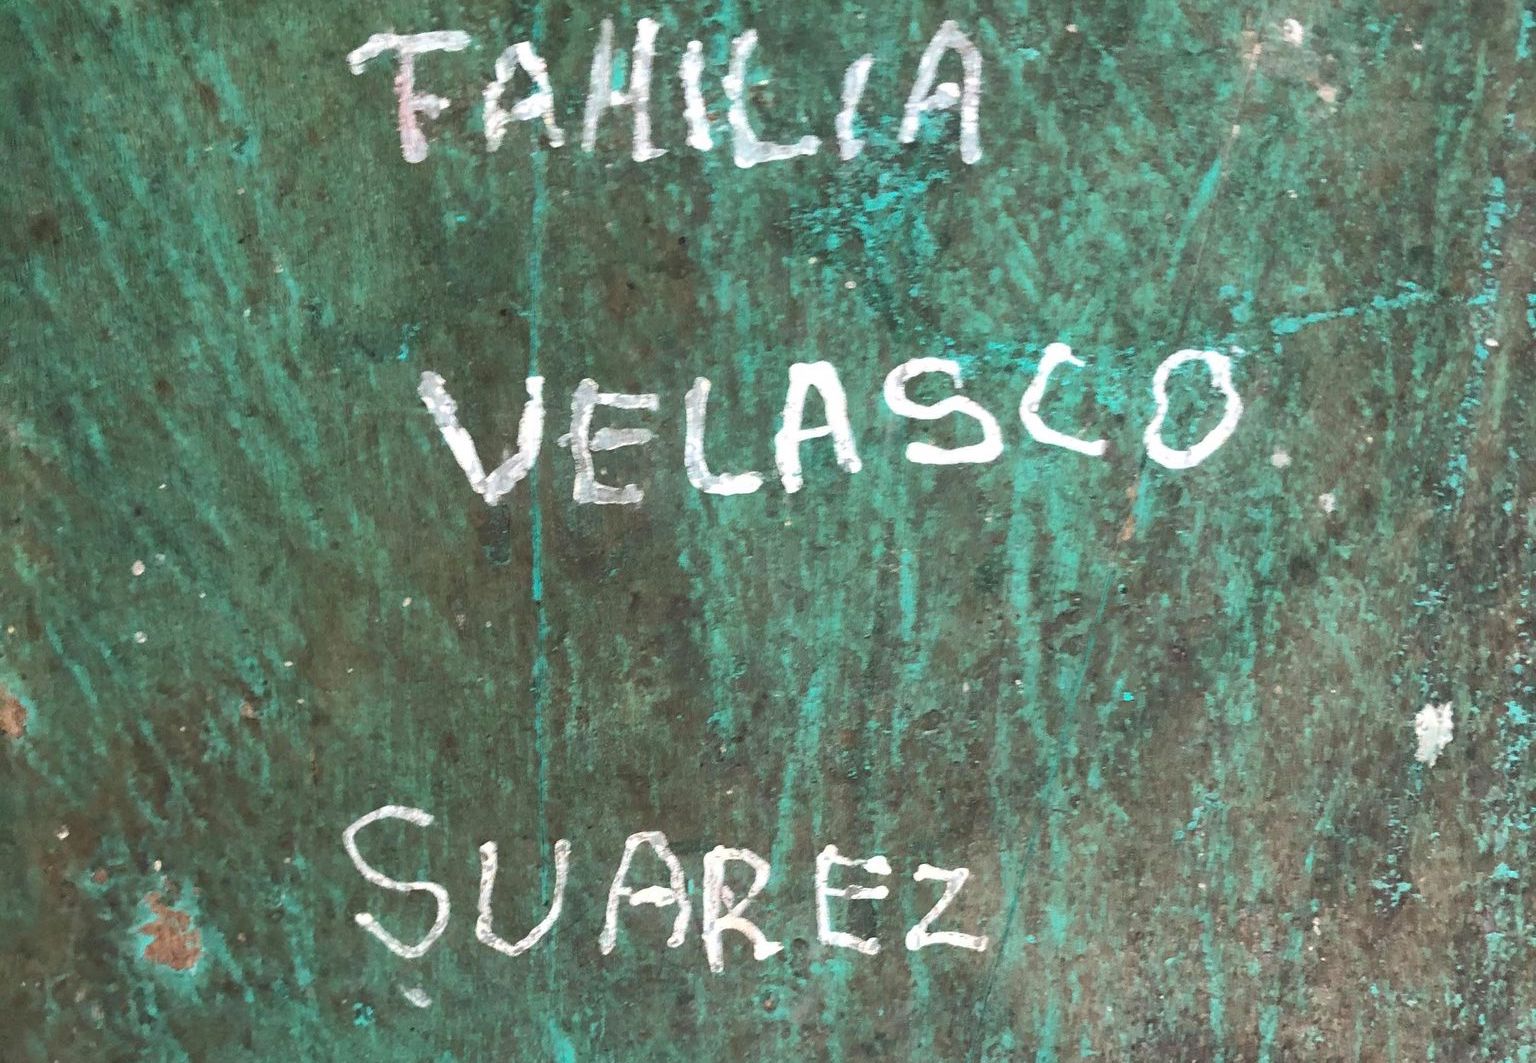 FAMILIA
VELASCO
SUAREZ